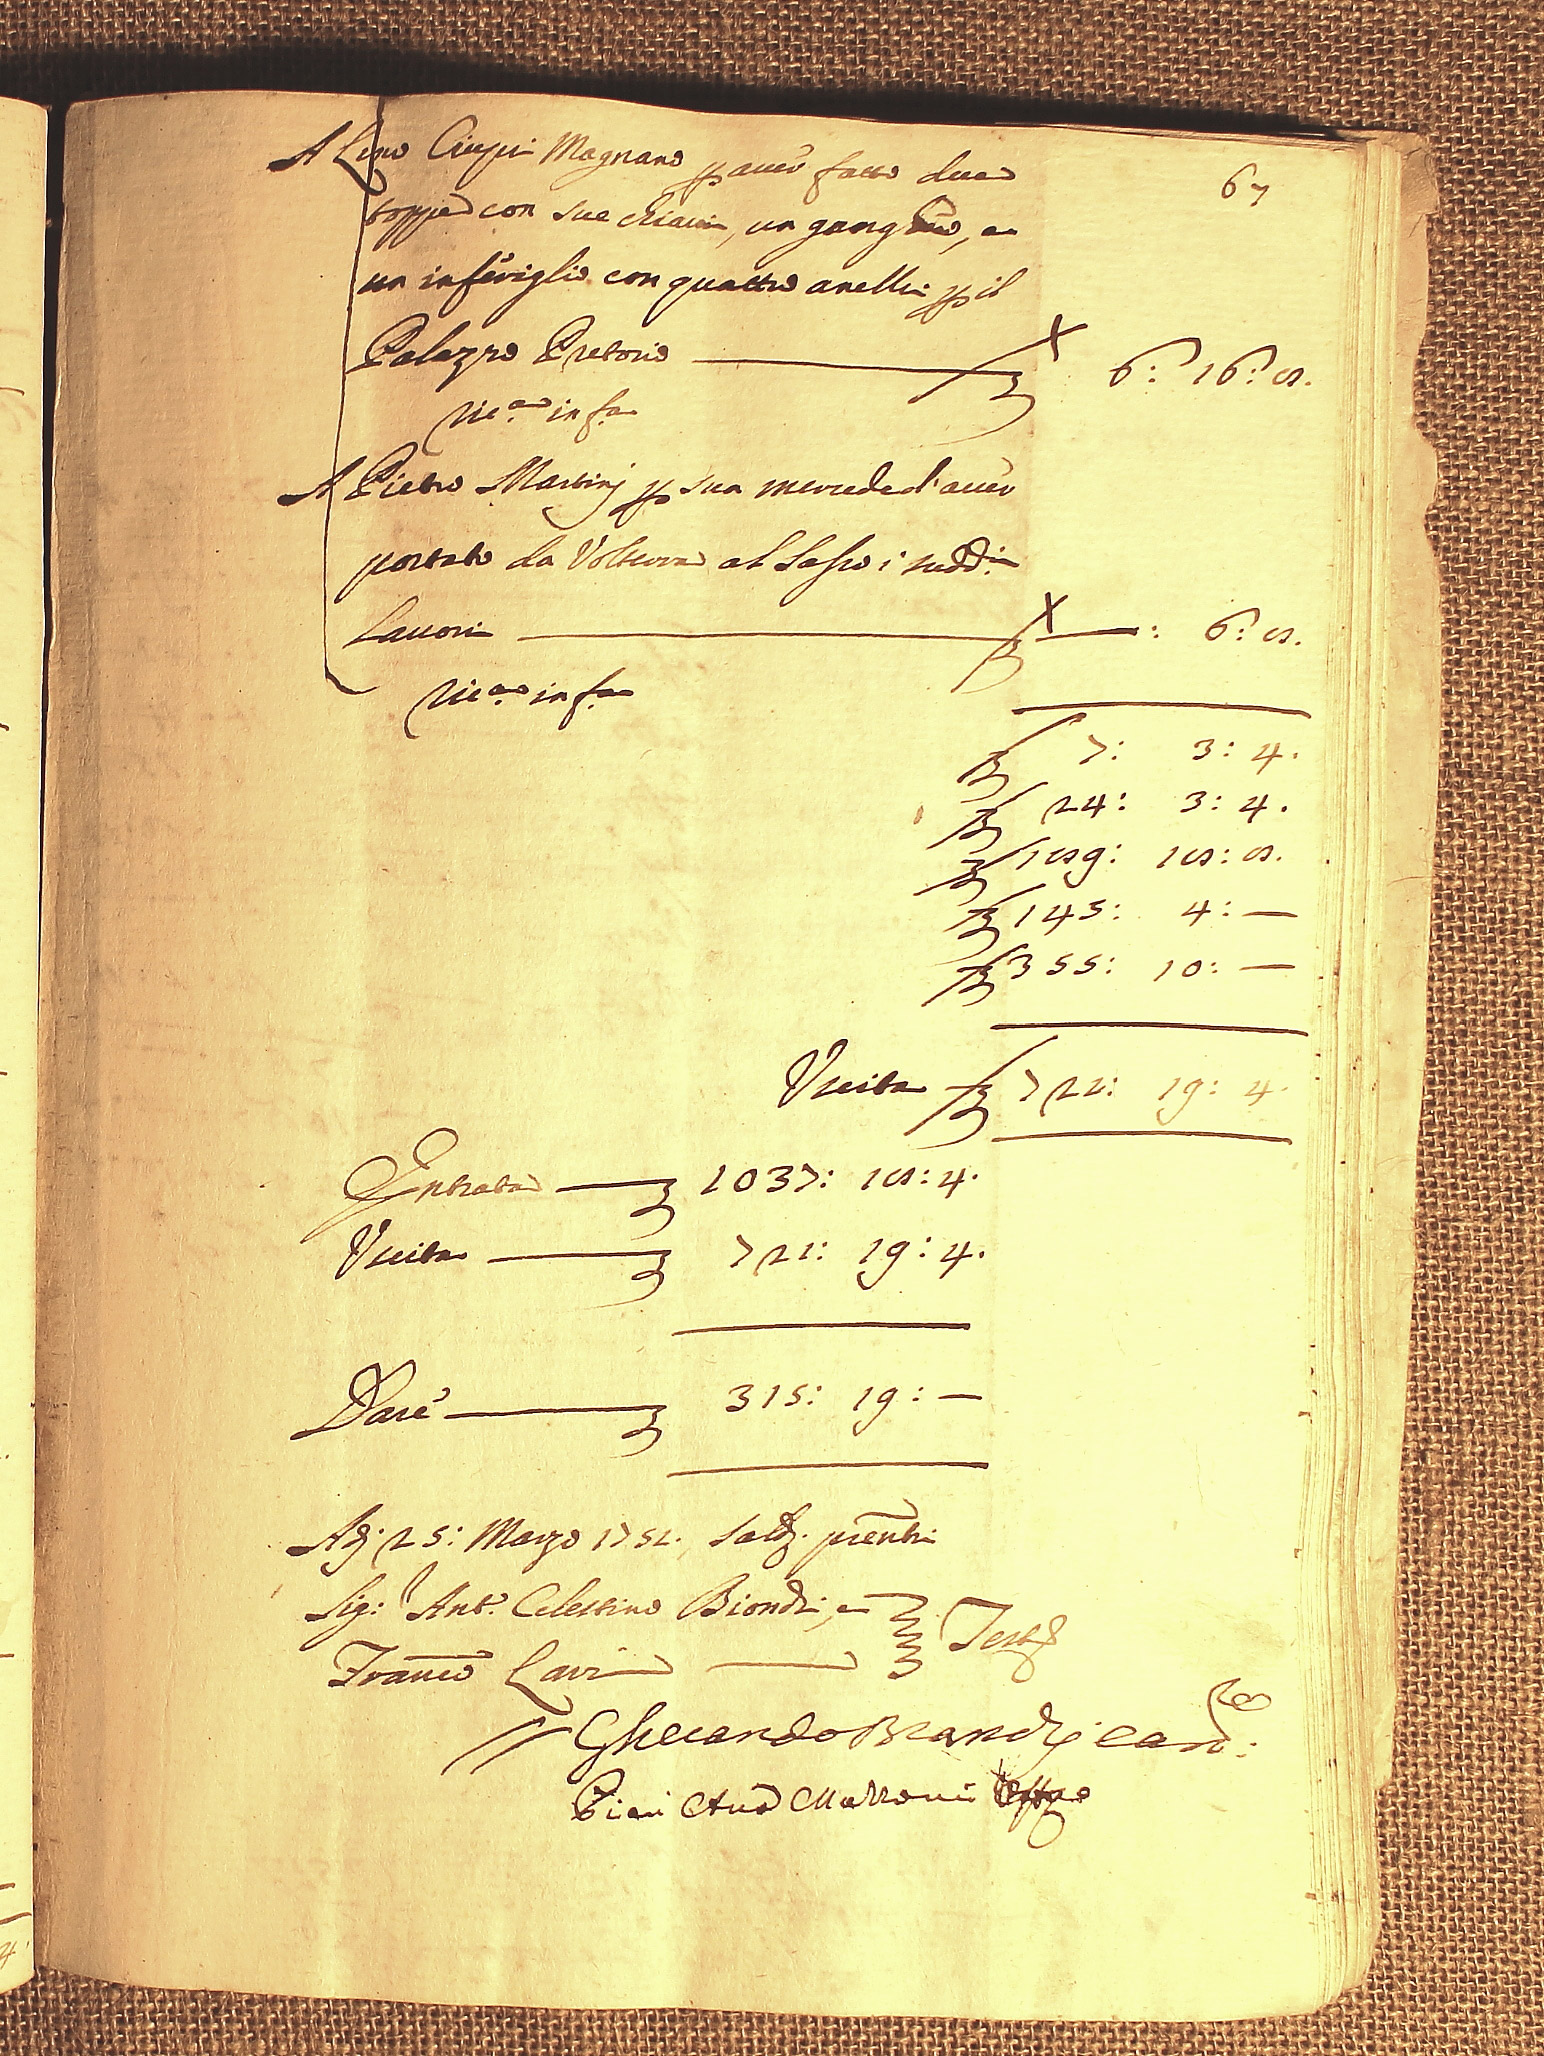 67
A Lino Ciupi Magnano p aver fatto due
toppe con sue chiavi, un ganghero, e
un inferriglio con quattro anelli p il
Palazzo Pretorio 6: 16: 0.
Ric.a in fa
A Pietro Martinj p sua mercede d'aver
portato da Volterra al Sasso i sudd.i
Lavori —: 6: 0.
Ric.a in fa
7: 3: 4.
24: 3: 4.
109: 10: 0.
145: 4: —
355: 10: —
Vscita 721: 19: 4.
Entrata 1037: 10: 4.
Vscita 721: 19: 4.
Dare 315: 19: —
Adj: 25: Marzo 1751. Sald. pnti
Sig: Ant.o Celestino Biondi, e
Franco Lari Test
Gherardo Brandi Can.re
Pier Anto Mazzoni